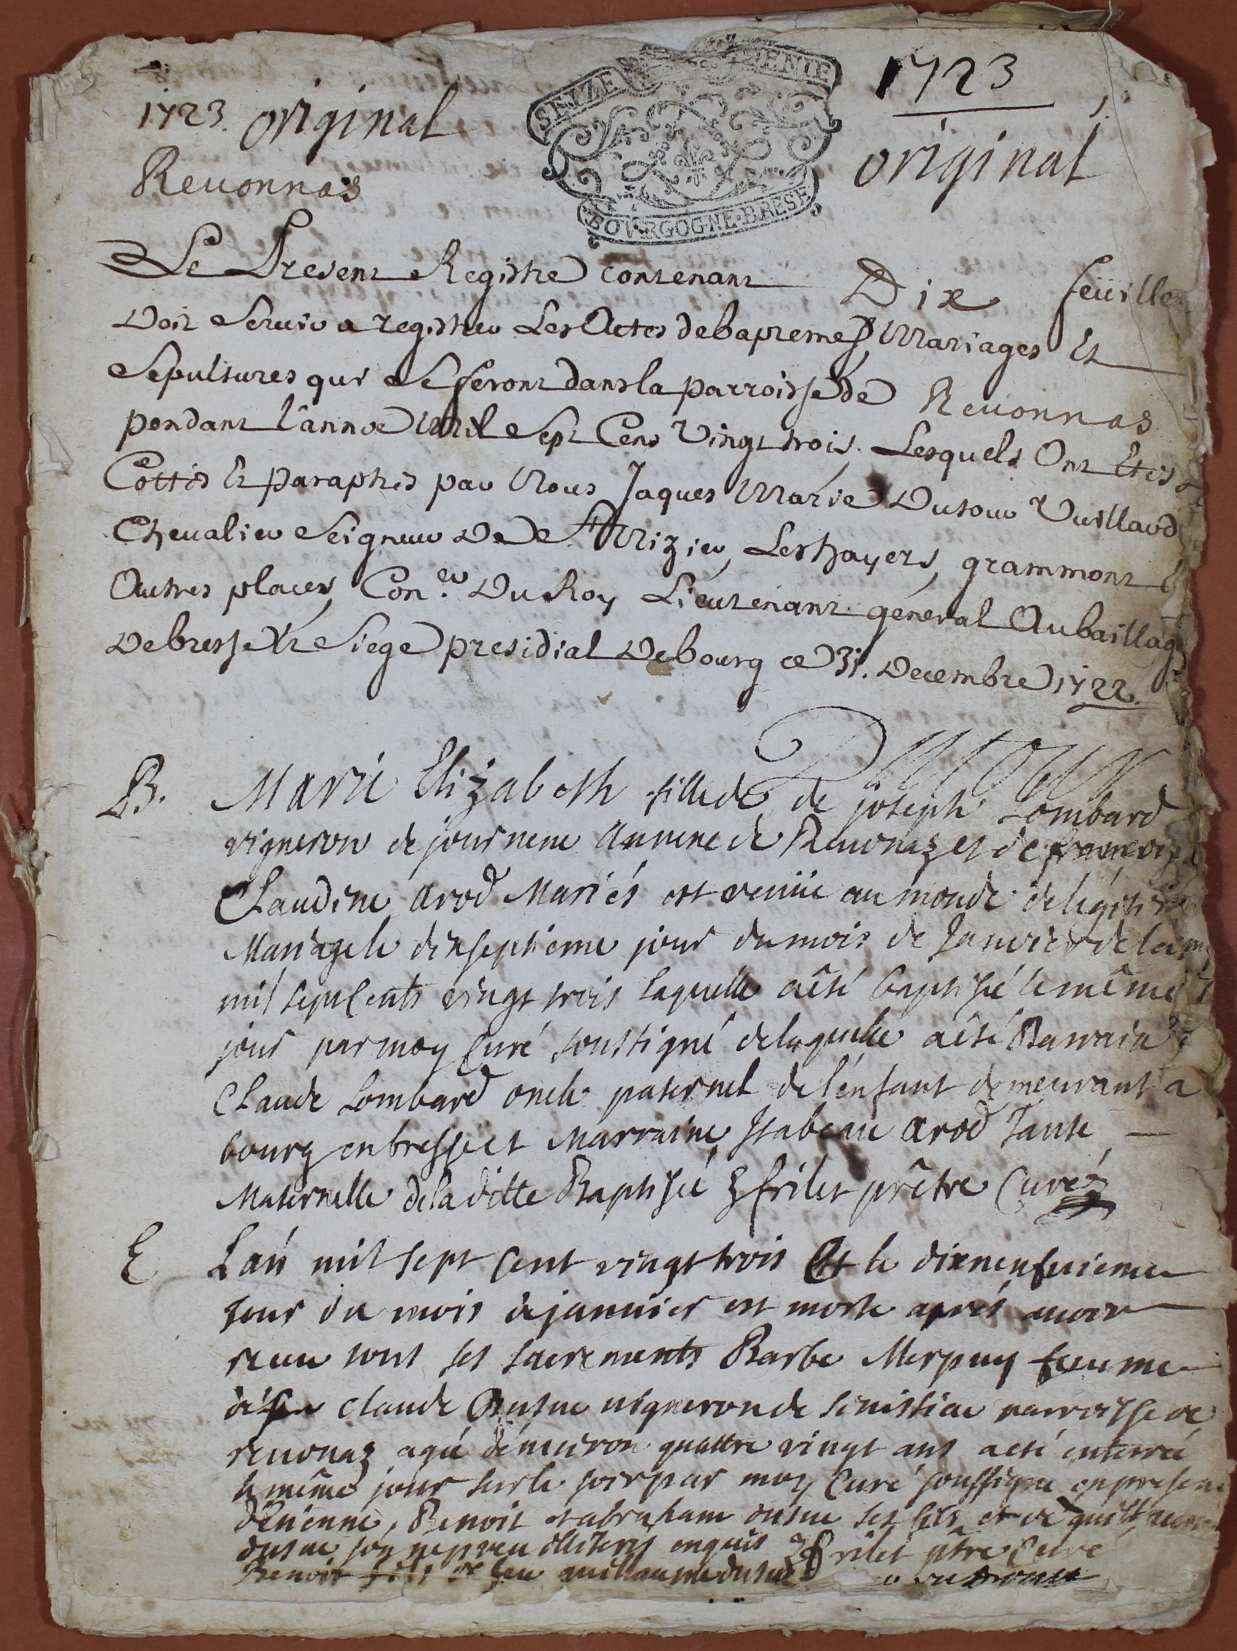 1723. original
Reuonnas
SEIZE DENIE
BOVRGOGNE·BRESE
1723
original
Le Present Registre contenant Dix feüilles
Doit Seruir a registrer Les Actes de baptemes, Mariages Et
Sepultures qui Se feront dans la parroisse de Reuonnas
pendant l'année Mil Sept Cens Vingt trois. Lesquels Ont Etés
Cottés Et paraphés par Nous Jaques Marie Dutour Vuillard
Cheualier Seigneur De St Nizier, Les hayers, grammont Et
Autres places, Con.er Du Roy Lieutenant general Au bailliage
De bresse Et Siege presidial De bourg ce 31. Decembre 1722.
Dutour
B. Marie Elizabeth fille de de joseph Lombard
vigneron de journene annexe de Reuonaz et de
Claudine arod Mariés est venüe au monde de legitime
Mariage le dixseptieme jour du mois de Janvier de
mil sept cents vingt trois laquelle a êté baptisée le même
jour par moy Curé soussigné de laquelle a êté Parrain
Claude Lombard oncle paternel de l'enfant demeurant a
bourg en bresse et Marraine Isabeau arod Tante
Maternelle de la ditte Baptisée frilet prêtre Curé
E L'an mil sept cent vingt trois Et le dixneufuieme
jour du mois de januier est morte aprés auoir
receu tous ses sacrements Barbe Merpuy femme
de Claude Dutue uigneron de Senissiae parroisse de
reuonaz agée d'enuiron quattre vingt ans a esté enterrée
le même jour sur le soir par moy Curé soussigné en presence
d'Etienne, Benoit et abraham dutue ses fils et de
dutue son nepveu illiterés enquis frilet ptre Curé
Benoit fils de feu guillaume dutue